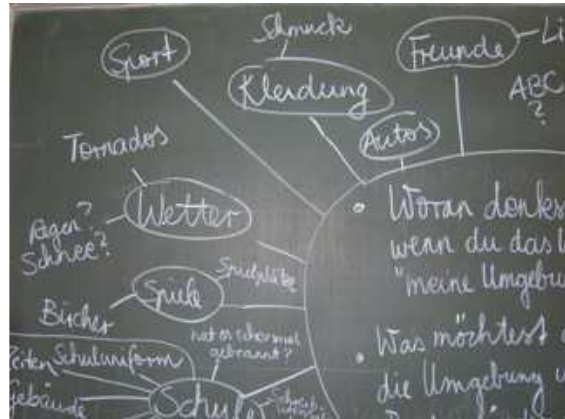 Sport
Schmuck
Kleidung
Freunde
Li
ABC
?
Autos
Tornados
Wetter
Regen?
Schnee?
Spiele
Spielplätze
Bücher
hat es schon mal
gebrannt?
Schuluniform
Gebäude
Schule
• Woran denks
wenn du das
"meine Umgebu
• Was möchtest
die Umgebung